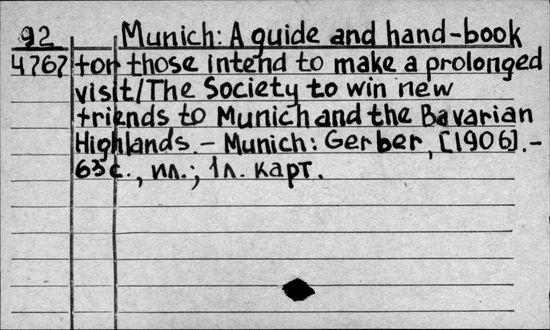 92 Munich: A guide and hand-book
4767 for those intend to make a prolonged
visit/The Society to win new
friends to Munich and the Bavarian
Highlands. - Munich: Gerber, [1906]. -
63 с., ил.; 1 л. карт.